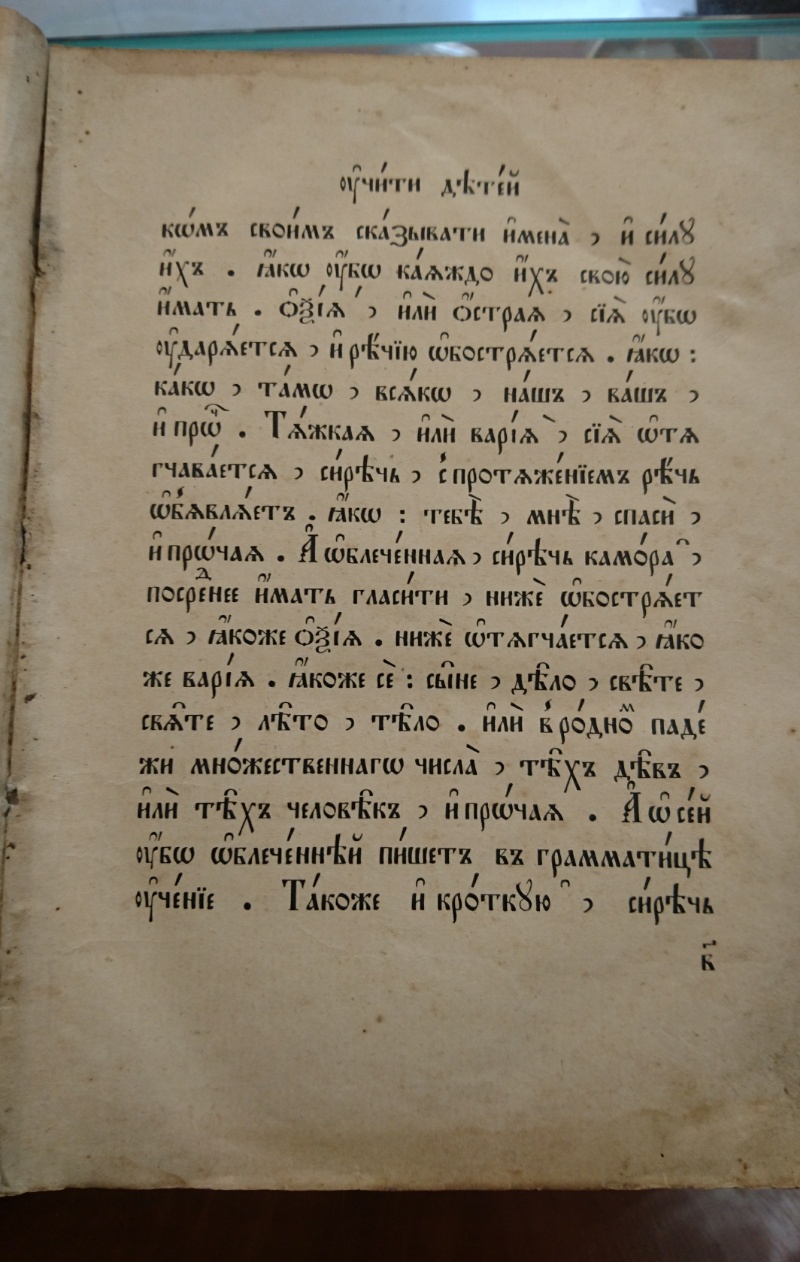 ᲂу҆чи́ти дѣте́й
кѡ́мъ свои́мъ ска́зывати и҆мена̀ , и҆ си́лꙋ
и҆́хъ . ꙗ҆́кѡ ᲂу҆́бѡ ка́ѧждо и҆́хъ свою̀ си́лꙋ
и҆́мать . ѻ҆ѯі́ѧ ́ , и҆лѝ ѻ҆́страѧ , сїѧ̀ ᲂу҆́бѡ
ᲂу҆дарѧ́етсѧ , и҆ рѣ́чїю ѡ҆бострѧ́етсѧ . ꙗ҆́кѡ :
ка́кѡ , та́мѡ , всѧ́кѡ , на́шъ , ва́шъ ,
и҆ прѡ́ч . Тѧ́жкаѧ , и҆лѝ варі́ѧ ̀ , сїѧ̀ ѡ҆тѧ
гчава́етсѧ , си́рѣчь , с̾ протѧже́нїемъ рѣ́чь
ѡ҆б̾ѧвлѧ́етъ . ꙗ҆́кѡ : тебѣ̀ , мнѣ̀ , спасѝ ,
и҆ прѡ́чаѧ . А҆ ѡ҆блече́ннаѧ , си́рѣчь камо́ра ̑ ,
посреⷣнее и҆́мать гласи́ти , нижѐ ѡ҆бострѧ́ет
сѧ , ꙗ҆́коже ѻ҆ѯі́ѧ . нижѐ ѡ҆тѧгча́етсѧ , ꙗ҆́ко
же варі́ѧ . ꙗ҆́коже сѐ : сы̑не , дѣ̑ло , свѣ̑те ,
свѧ̑те , лѣ̑то , тѣ̑ло . и҆лѝ в̾ ро́дноⷨ паде́
жи мно́жественнагѡ числа̀ , тѣ̑хъ дѣ̑въ ,
и҆лѝ тѣ̑хъ человѣ̑къ , и҆ прѡ́чаѧ . А҆ ѡ҆ се́й
ᲂу҆́бѡ ѡ҆блече́ннѣй пи́шетъ въ граммати́цѣ
ᲂу҆че́нїе . Та́коже и҆ кро́ткꙋю ̑ , си́рѣчь
в҃